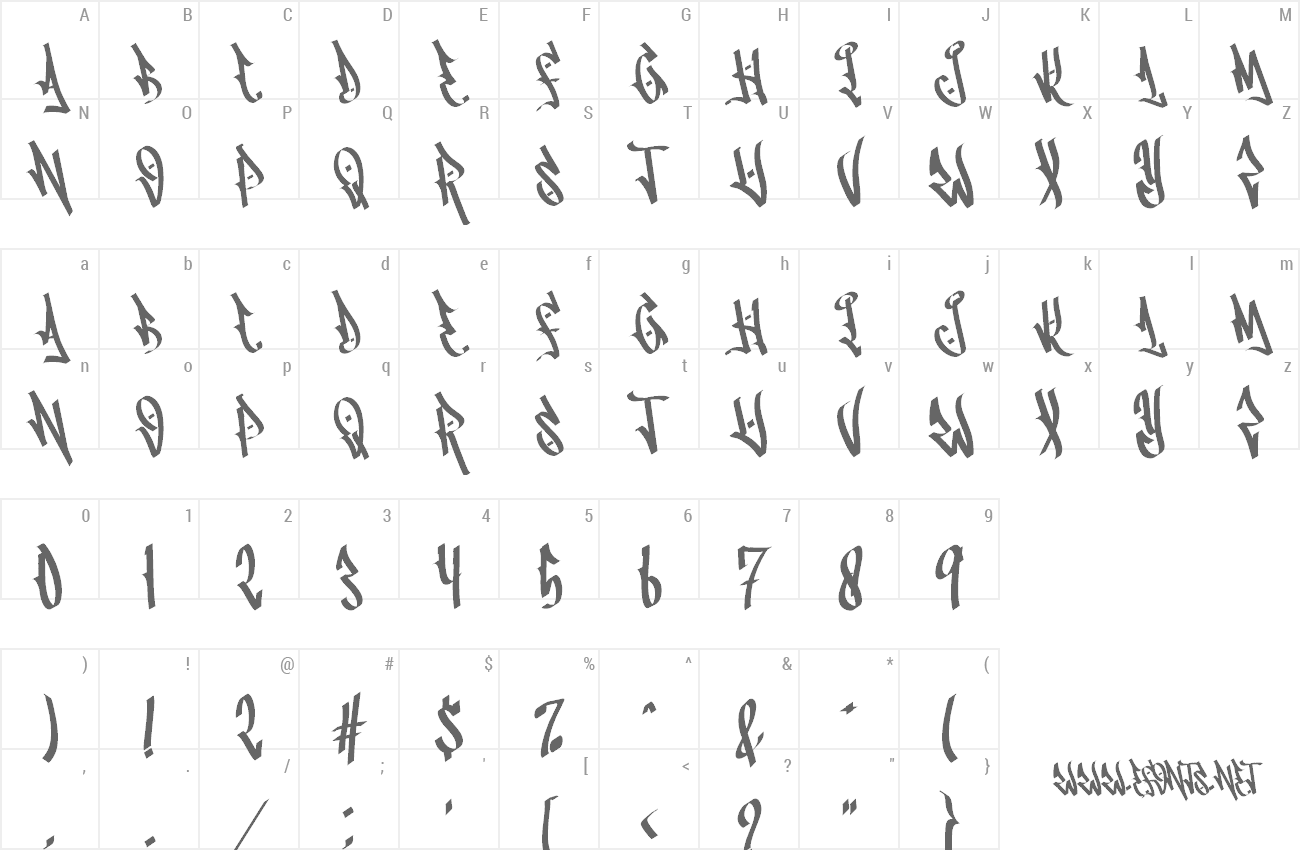 A B C D E F G H I J K L M
A B C D E F G H I J K L M
N O P Q R S T U V W X Y Z
N O P Q R S T U V W X Y Z
a b c d e f g h i j k l m
A B C D E F G H I J K L M
n o p q r s t u v w x y z
N O P Q R S T U V W X Y Z
0 1 2 3 4 5 6 7 8 9
0 1 2 3 4 5 6 7 8 9
) ! @ # $ % ^ & * (
) ! 2 # $ % ^ & * (
, . / ; ' [ < ? " }
, . / ; ' [ < ? " }
WWW.EFONTS.NET